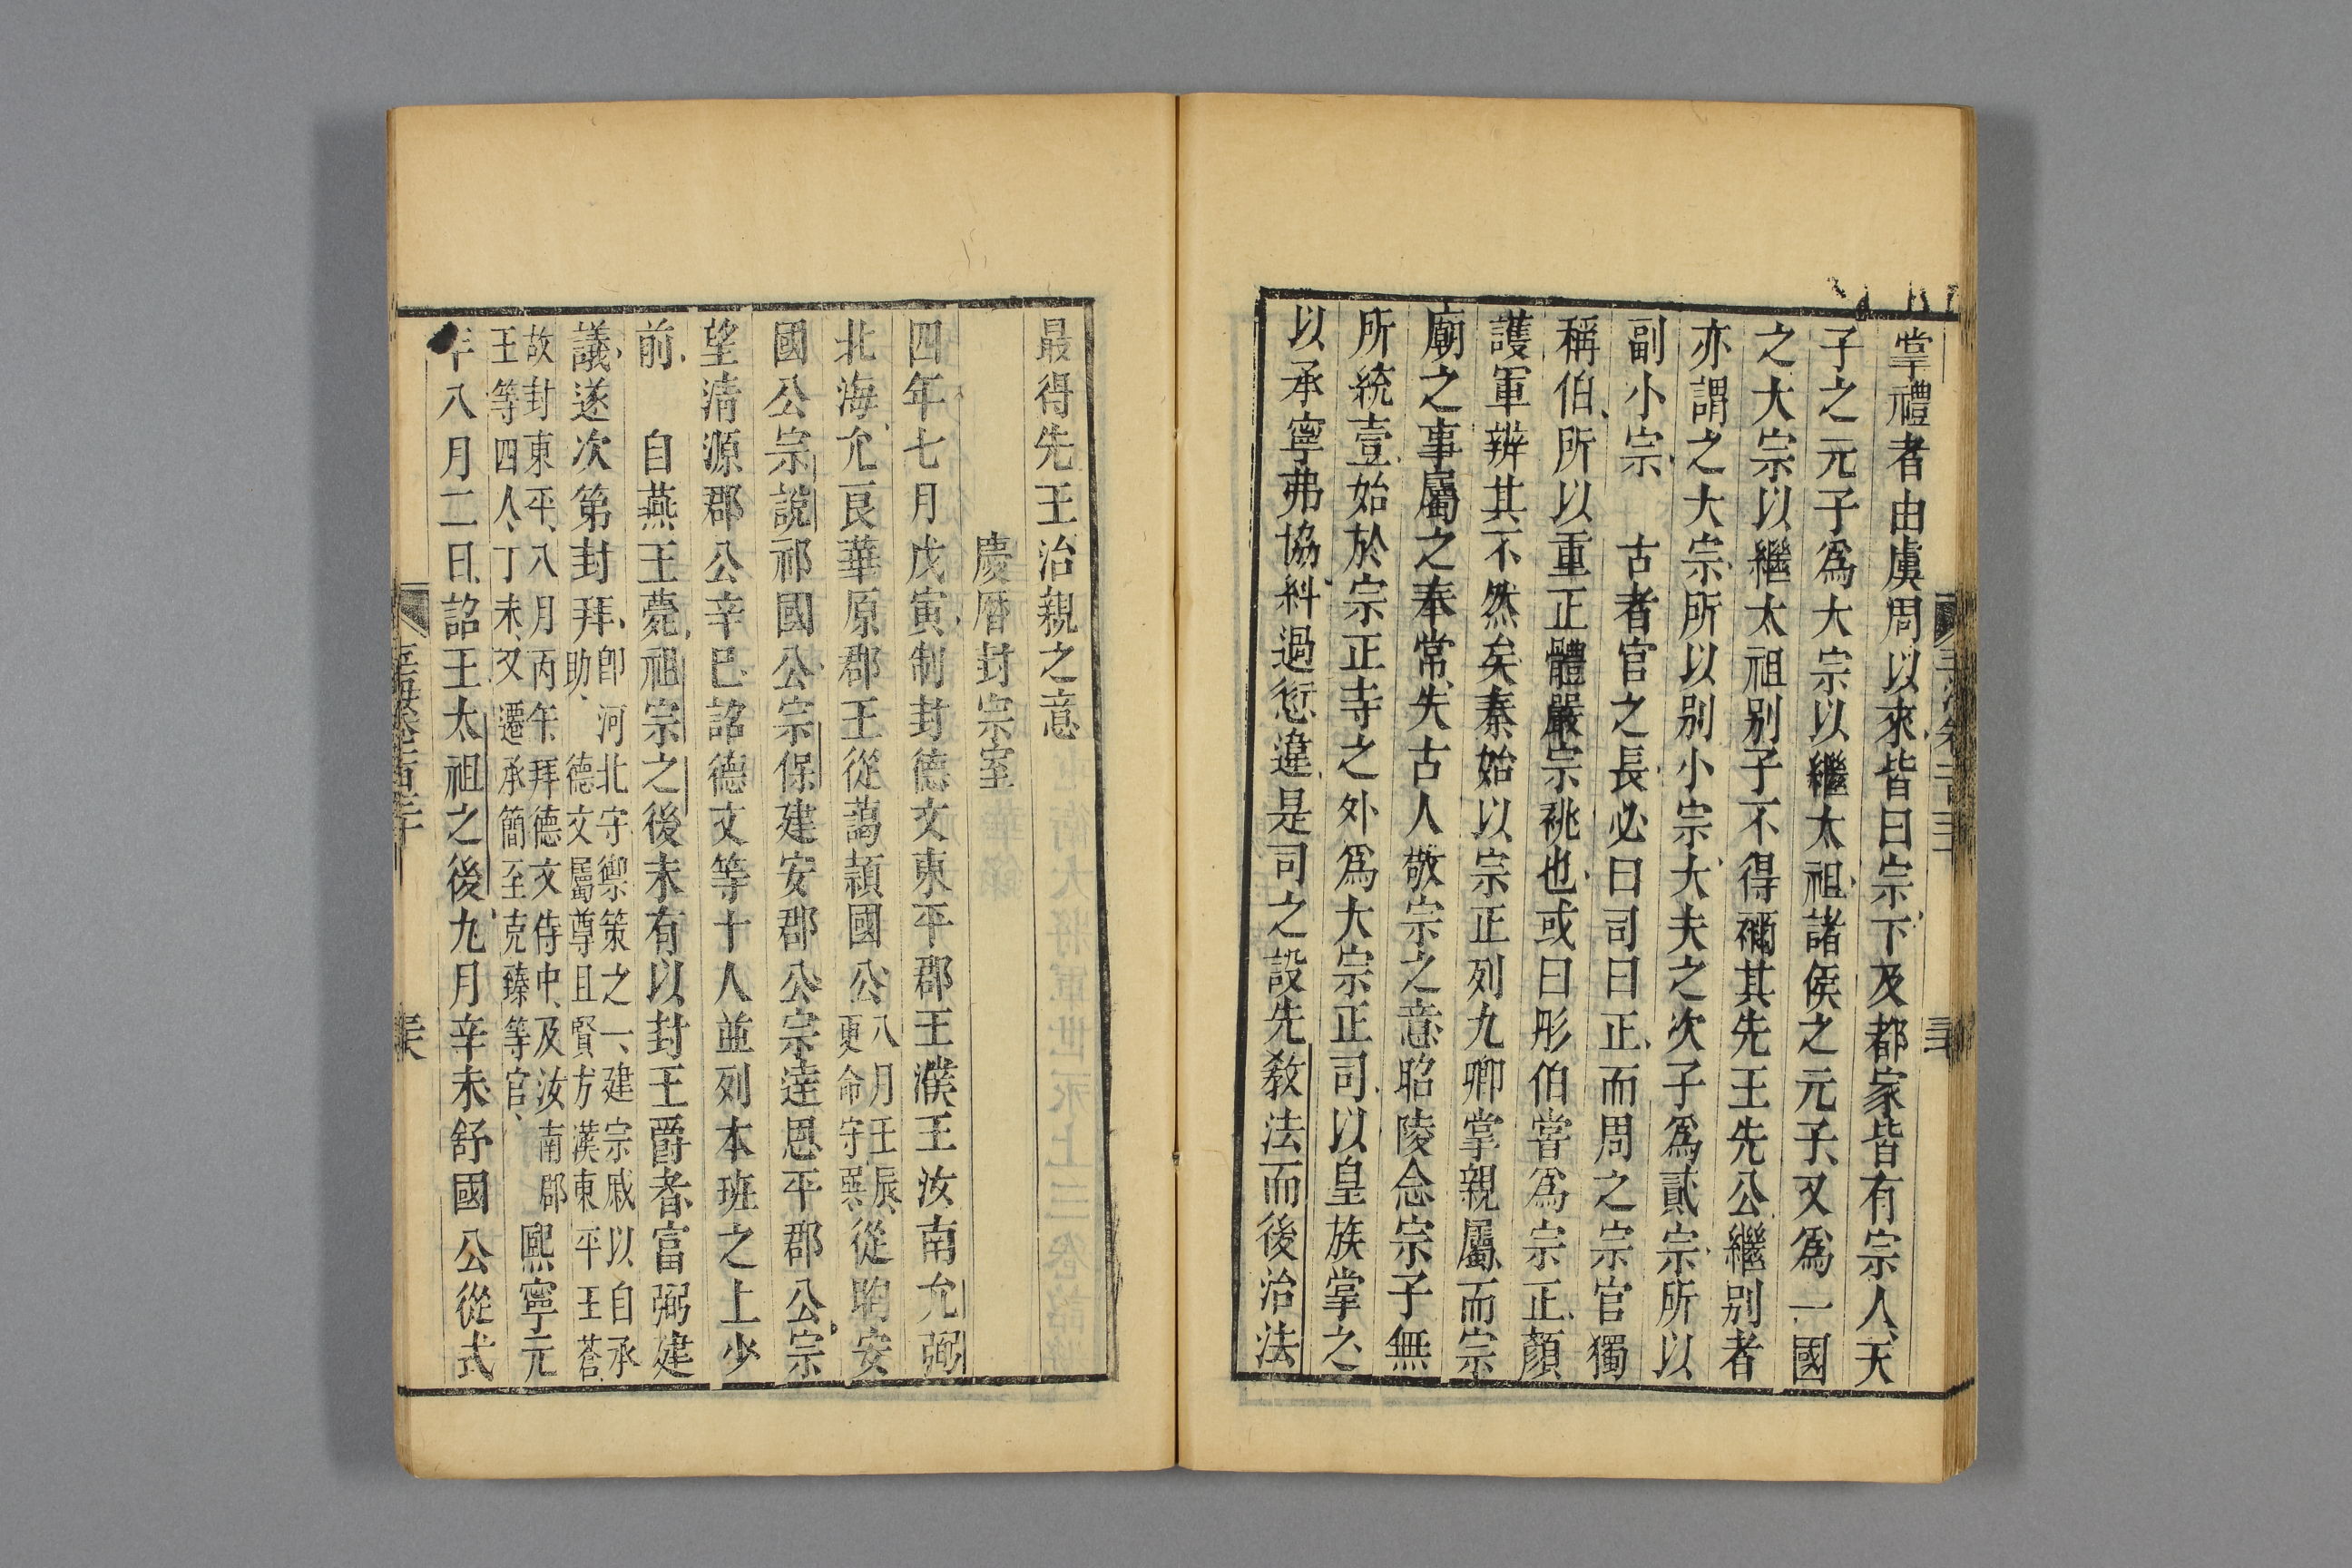 掌禮者由虞周以來皆曰宗下及都家皆有宗人天
子之元子爲大宗以繼太祖諸侯之元子又爲一國
之大宗以繼太祖别子不得禰其先王先公繼别者
亦謂之大宗所以别小宗大夫之次子爲貳宗所以
副小宗　古者官之長必曰司曰正而周之宗官獨
稱伯所以重正體嚴宗祧也或曰彤伯嘗爲宗正顏
護軍辨其不然矣秦始以宗正列九卿掌親屬而宗
廟之事屬之奉常失古人敬宗之意昭陵念宗子無
所統壹始於宗正寺之外爲大宗正司以皇族掌之
以承寧弗協糾過愆違是司之設先教法而後治法
最得先王治親之意
慶曆封宗室
四年七月戊寅制封德文東平郡王濮王汝南允弼
北海允良華原郡王從藹頴國公八月壬辰更命守巽從昫安
國公宗說祁國公宗保建安郡公宗達恩平郡公宗
望清源郡公辛巳詔德文等十人並列本班之上少
前　自燕王薨祖宗之後未有以封王爵者富弼建
議遂次第封拜卽河北守禦策之一建宗戚以自承
助德文屬尊且賢方漢東平王蒼
故封東平八月丙午拜德文侍中及汝南郡
王等四人丁未又遷承簡至克臻等官熙寧元
年八月二日詔王太祖之後九月辛未舒國公從式